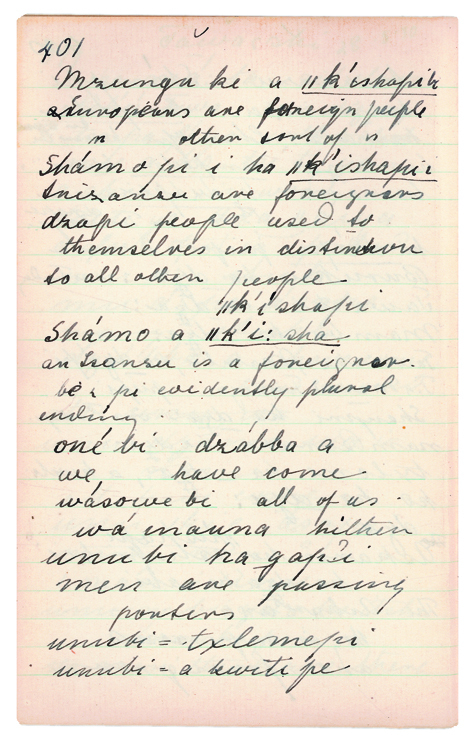 401
Mzungu ki a ǁk'ishapi
Europeans are foreign people
n other sort of n
Shámo pi i ha ǁk'ishapi:
Anizanzu are foreigners
dzapi people used to
themselves in distinction
to all other people
ǁk'ishapi
Shámo a ǁk'i: sha.
an Izanzu is a foreigner.
be & pi evidently plural
ending
oné bi dzábba a
we, have come
wásowe bi all of us.
wá inauna hither
unubi ha gapi
men are passing
porters
unubi = txlemepi
unubi = a kwiti pe